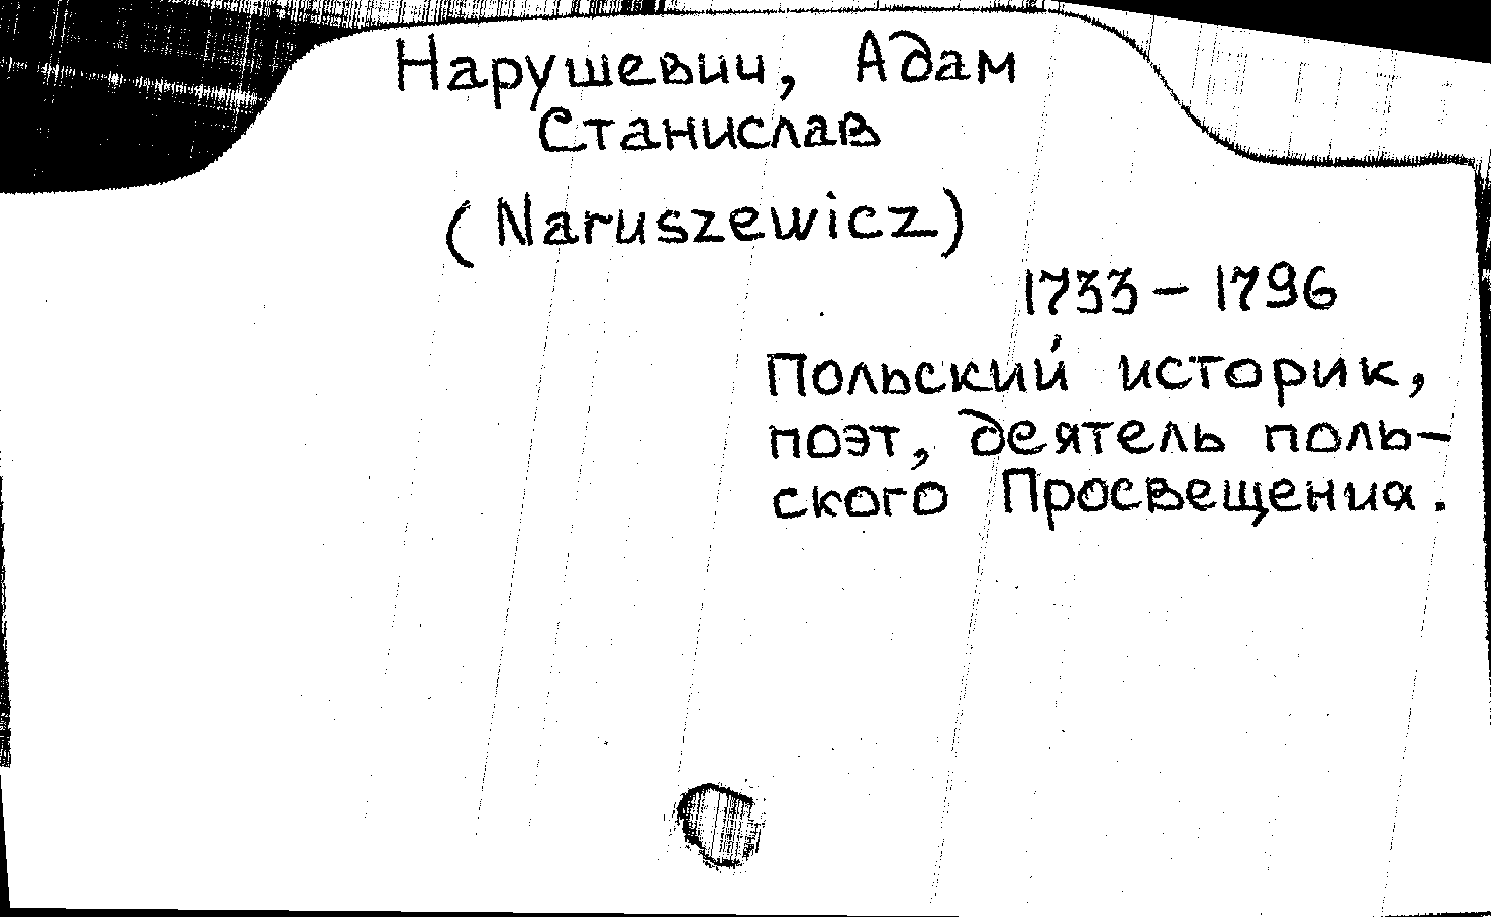 Нарушевич, Адам
Станислав
(Naruszewicz)
1733 – 1796
Польский историк,
поэт, деятель поль-
ского Просвещения.